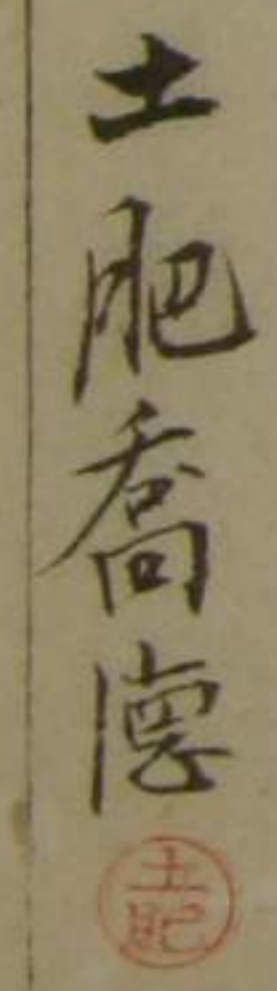 土肥喬德
土肥